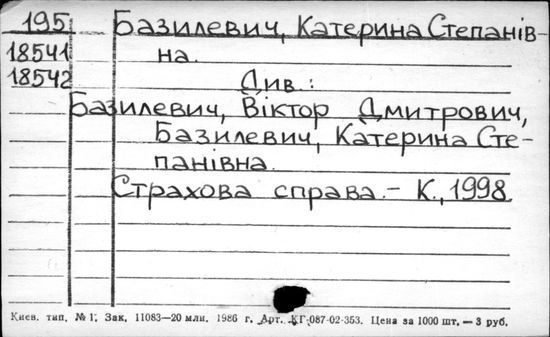 195 Базилевич, Катерина Степанів-
18541 на.
18542 Див.:
Базилевич, Віктор Дмитрович,
Базилевич, Катерина Сте-
панівна.
Страхова справа.– К., 1998.
Киев. тип. № 1. Зак. 11083—20 млн. 1986 г. Арт. КГ-087-02-353. Цена за 1000 шт. — 3 руб.